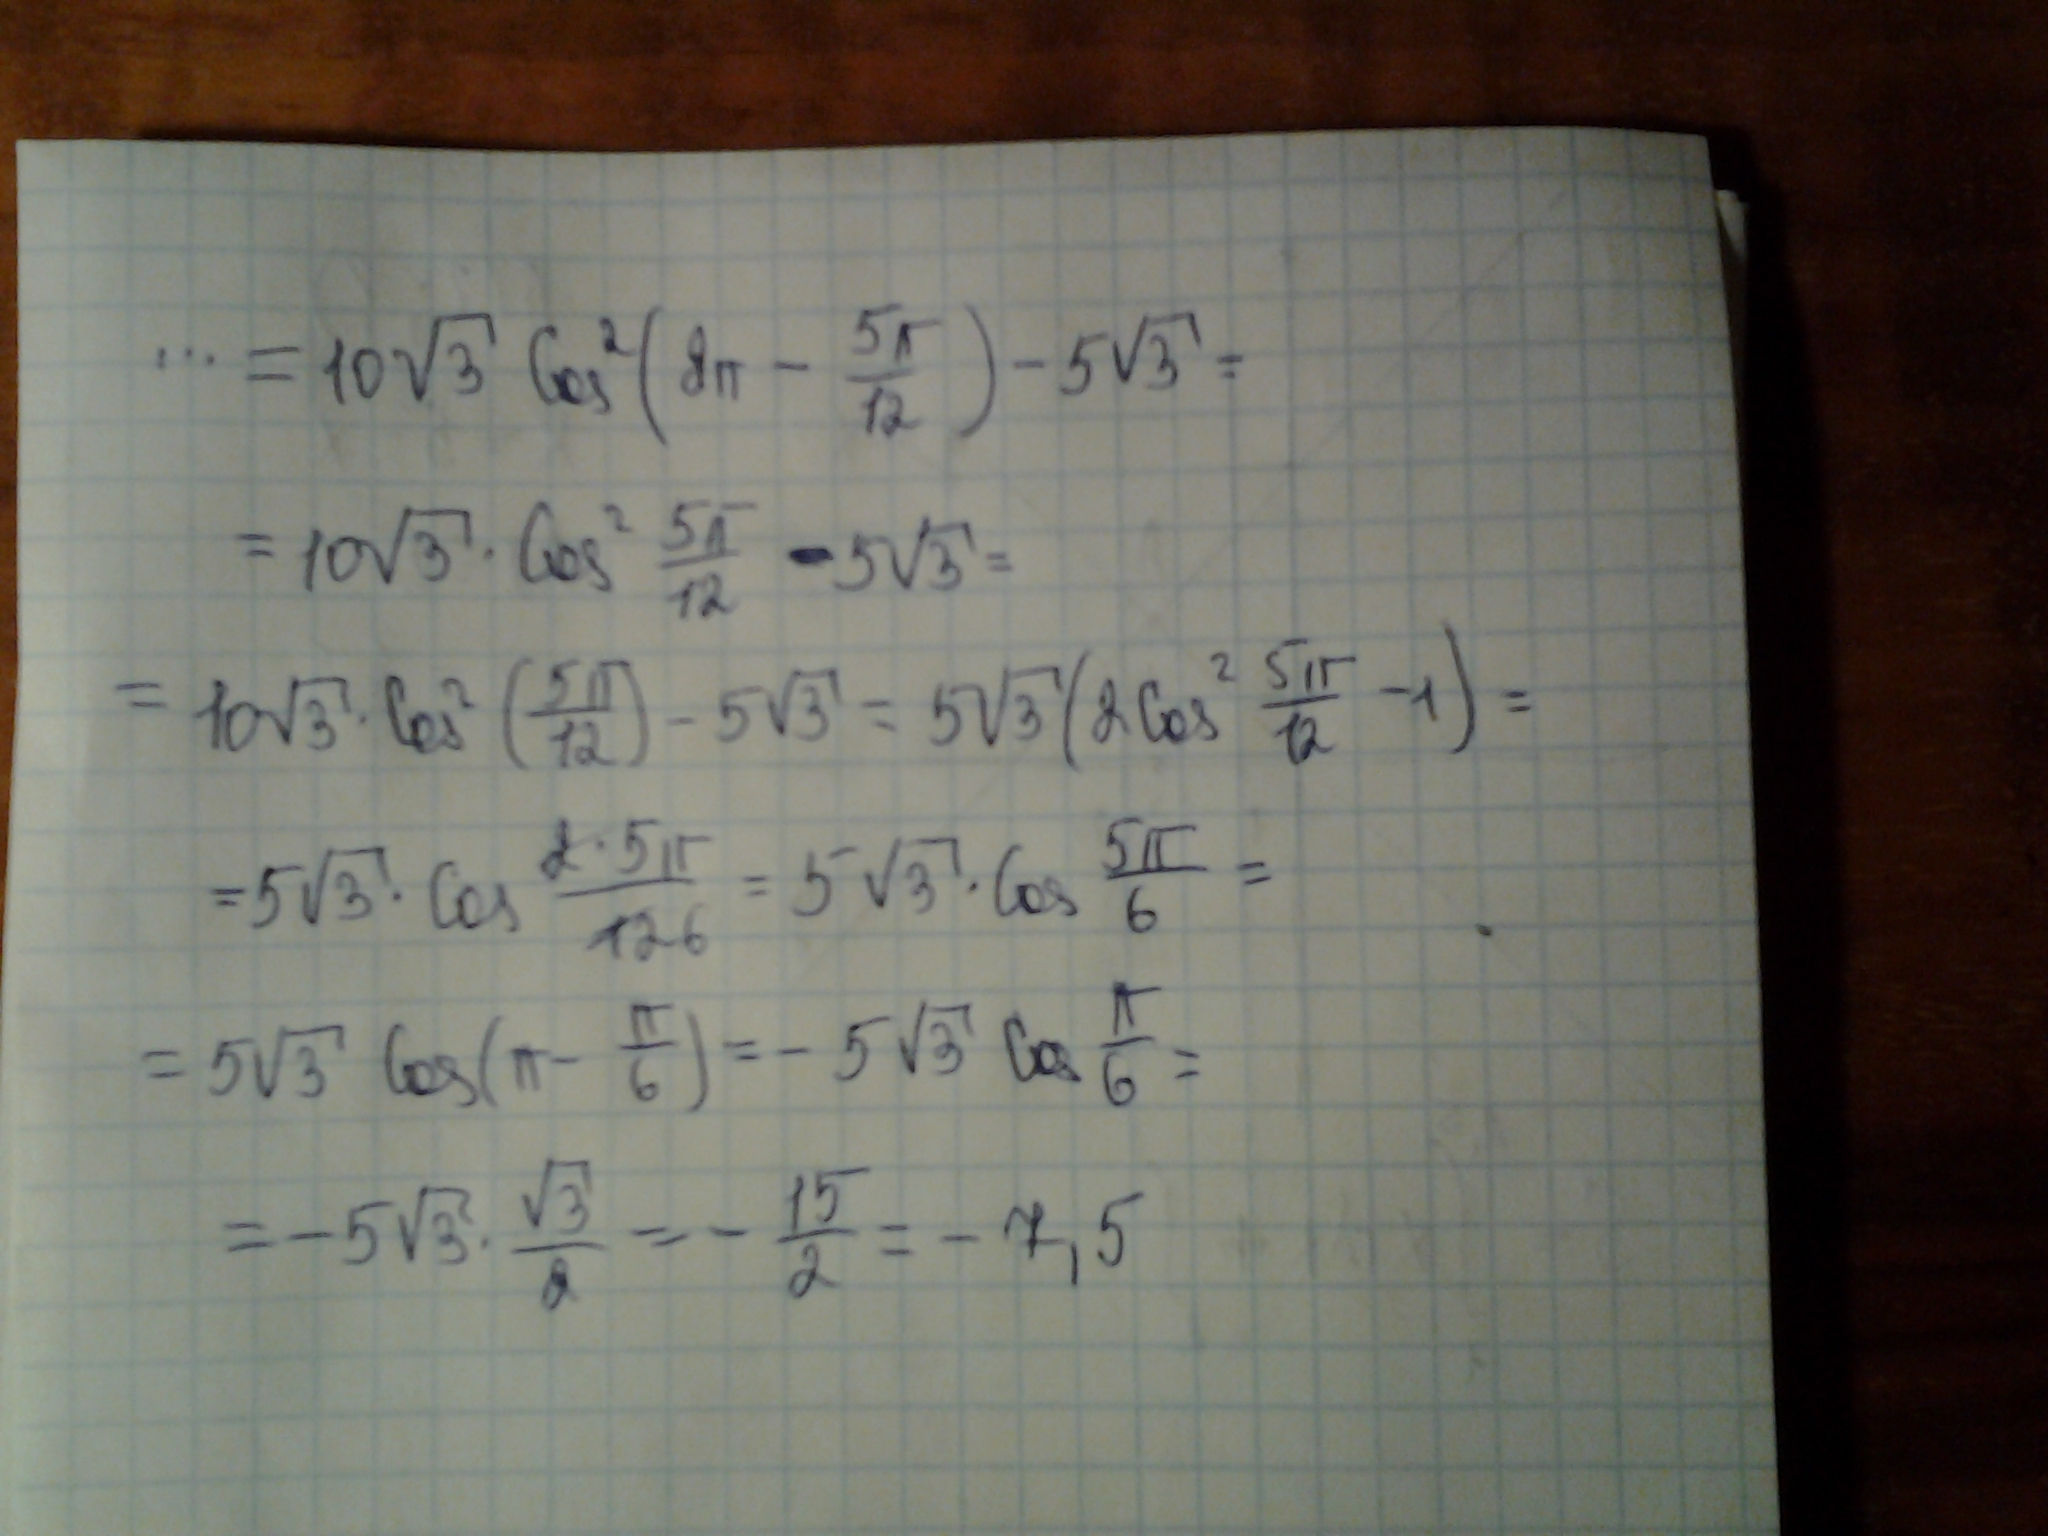 ... = 10√3 Cos²(2π - 5π/12) - 5√3 =
= 10√3 · Cos² 5π/12 - 5√3 =
= 10√3 · Cos² (5π/12) - 5√3 = 5√3 (2Cos² 5π/12 - 1) =
= 5√3 · Cos 2·5π/12 6 = 5√3 · Cos 5π/6 =
= 5√3 Cos(π - π/6) = - 5√3 Cos π/6 =
= - 5√3 · √3/2 = - 15/2 = - 7,5